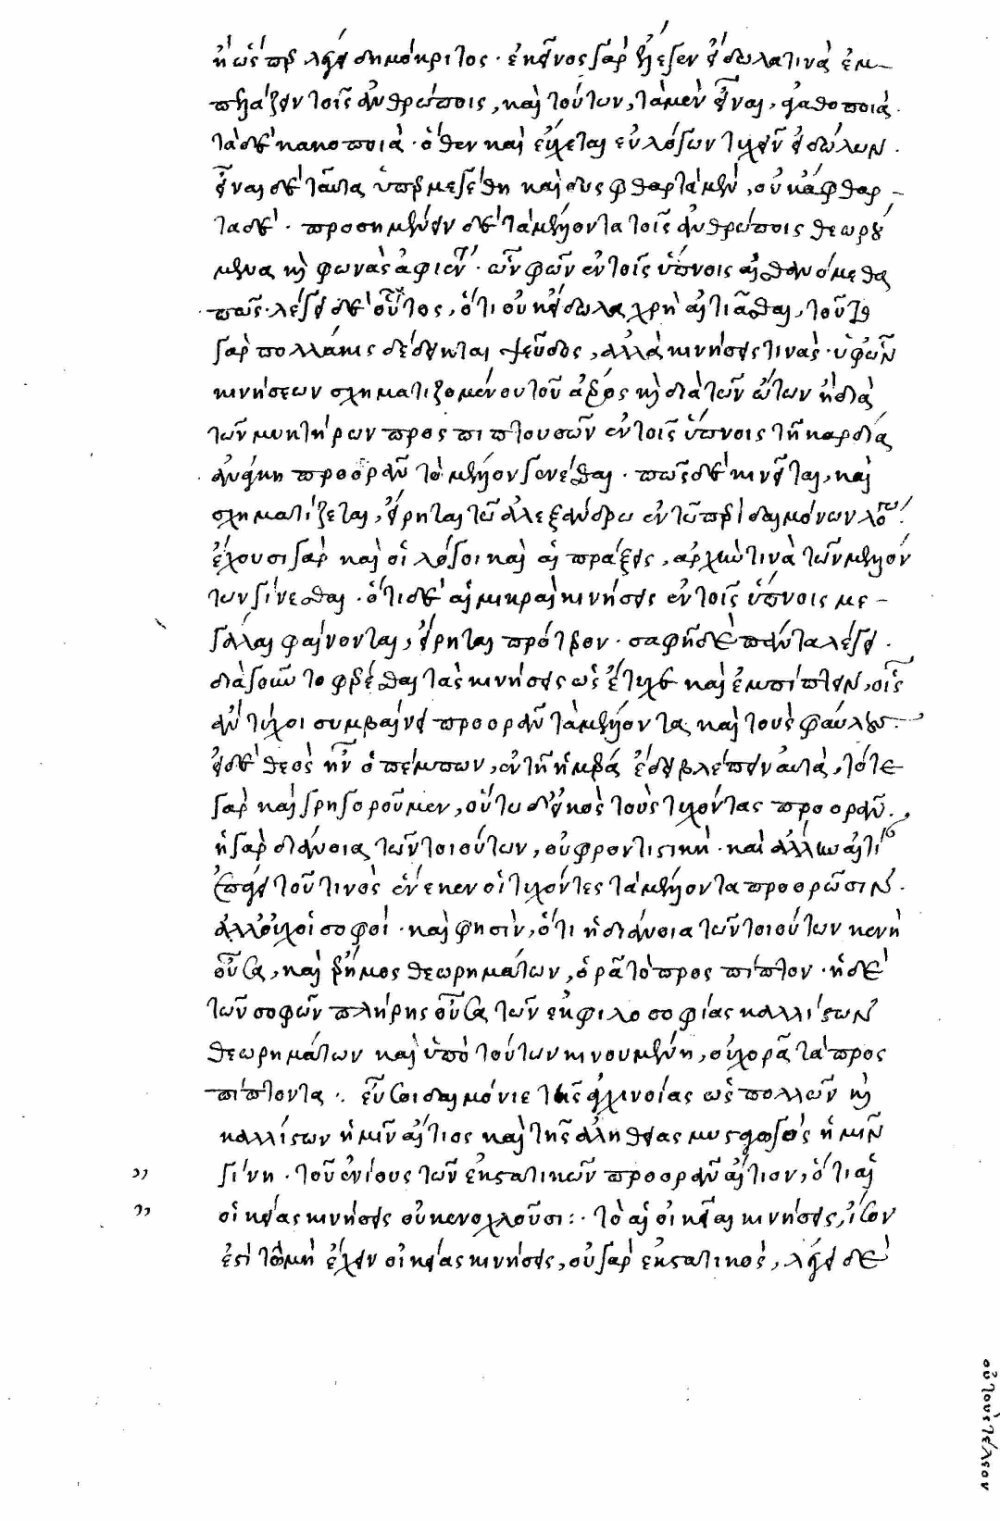 ἢ ὥσπερ λέγει δημόκριτος · ἐκεῖνος γὰρ ἔλεγεν εἴδωλα τινὰ ἐμ-
πελάζειν τοῖς ἀνθρώποις, καὶ τούτων, τὰ μὲν εἶναι, ἀγαθοποιὰ.
τὰ δὲ κακοποιὰ · ὅθεν καὶ εὔχεται εὐλόγων τυχεῖν εἰδώλων.
εἶναι δὲ ταῦτα ὑπερμεγέθη καὶ δυσφθαρτα μὲν, οὐκ ἄφθαρ-
τα δὲ · προσημαίνειν δὲ τὰ μέλλοντα τοῖς ἀνθρώποις θεωρού
μενα καὶ φωνὰς ἀφιέντα · ὧν φωνῶν ἐν τοῖς ὕπνοις αἰσθανόμεθα
πως · λέγει δὲ οὗτος, ὅτι οὐκ εἴδωλα χρὴ αἰτιᾶσθαι, τοῦτο
γὰρ πολλάκις δέδεικται ψεῦδος, ἀλλὰ κινήσεις τινὰς · ὑφ' ὧν
κινήσεων σχηματιζομένου τοῦ ἀέρος καὶ διὰ τῶν ὤτων ἢ διὰ
τῶν μυκτήρων προσπιπτουσῶν ἐν τοῖς ὕπνοις τῆ καρδία
ἀνάγκη προορᾶν τὸ μέλλον γενέσθαι · πῶς δὲ κινεῖται, καὶ
σχηματίζεται, εἴρηται τῶ ἀλεξάνδρω ἐν τῶ περὶ δαιμόνων λόγω.
ἔχουσι γὰρ καὶ οἱ λόγοι καὶ αἱ πράξεις, ἀρχὴν τινὰ τῶν μελλόν
των γίνεσθαι · ὅτι δὲ αἱ μικραὶ κινήσεις ἐν τοῖς ὕπνοις με-
γάλαι φαίνονται, εἴρηται πρότερον · σαφῆ δὲ πάντα λέγει.
διὰ γοῦν τὸ φέρεσθαι τὰς κινήσεις ὡς ἔτυχε καὶ ἐμπίπτειν, οἷς
ἂν τύχοι συμβαίνει προορᾶν τὰ μέλλοντα καὶ τοὺς φαύλους.
εἰ δὲ θεὸς ἦν ὁ πέμπων, ἐν τῆ ἡμέρα ἔδει βλέπειν αὐτὰ, τότε
γὰρ καὶ γρηγοροῦμεν, οὕτω δ' εἰκὸς τοὺς τυχόντας προορᾶν.
ἡ γὰρ διάνοια τῶν τοιούτων, οὐ φροντιστικὴ · καὶ ἄλλην αἰτίαν
ἐπάγει τοῦ τίνος ἕνεκεν οἱ τυχόντες τὰ μέλλοντα προορῶσιν.
ἀλλ' οὐχ οἱ σοφοί · καὶ φησὶν, ὅτι ἡ διάνοια τῶν τοιούτων κενὴ
οὖσα, καὶ ἔρημος θεωρημάτων, ὁρᾶ τὸ προσπίπτον · ἡ δὲ
τῶν σοφῶν πλήρης οὖσα τῶν ἐκ φιλοσοφίας καλλίστων
θεωρημάτων καὶ ὑπὸ τούτων κινουμένη, οὐχ ορᾶ τὰ προσ
πίπτοντα ·. εὖ σοι δαιμόνιε τῆς ἀγχινοίας ὡς πολλῶν καὶ
καλλίστων ἡμῖν αἴτιος καὶ τῆς ἀληθείας μυσταγωγὸς ἡμῖν
γίνη · τοῦ ἐνίους τῶν ἐκστατικῶν προορᾶν αἴτιον, ὅτι αἱ
οἰκεῖαι κινήσεις οὐκ ἐνοχλοῦσι :· τὸ αἱ οἰκεῖαι κινήσεις, ἴσον
ἐστὶ τῶ μὴ ἔχειν οἰκείας κινήσεις, οὐ γὰρ ἐκστατικὸς, λέγει δὲ
οὐ τοὺς τέλεον